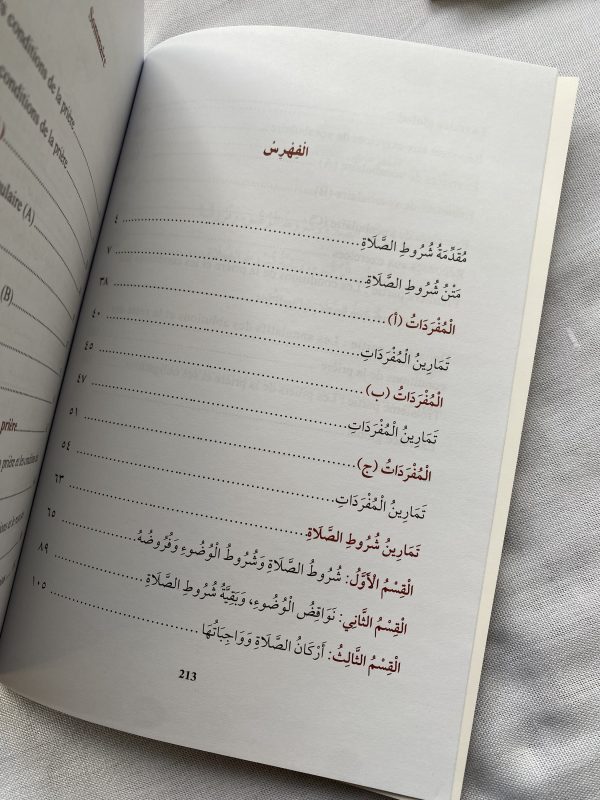 Sommaire
conditions de la prière
conditions de la prière
(A)
(B)
prière
الْفِهْرِسُ
مُقَدِّمَةُ شُرُوطِ الصَّلَاةِ ٤
مَتْنُ شُرُوطِ الصَّلَاةِ ٧
الْمُفْرَدَاتُ (أ) ٣٨
تَمَارِينُ الْمُفْرَدَاتِ ٤٠
الْمُفْرَدَاتُ (ب) ٤٥
تَمَارِينُ الْمُفْرَدَاتِ ٤٧
الْمُفْرَدَاتُ (ج) ٥١
تَمَارِينُ الْمُفْرَدَاتِ ٥٤
تَمَارِينُ شُرُوطِ الصَّلَاةِ ٦٣
الْقِسْمُ الْأَوَّلُ: شُرُوطُ الصَّلَاةِ وَشُرُوطُ الْوُضُوءِ وَفُرُوضُهُ ٦٥
الْقِسْمُ الثَّانِي: نَوَاقِضُ الْوُضُوءِ، وَبَقِيَّةُ شُرُوطِ الصَّلَاةِ ٨٩
الْقِسْمُ الثَّالِثُ: أَرْكَانُ الصَّلَاةِ وَوَاجِبَاتُهَا ١٠٥
213